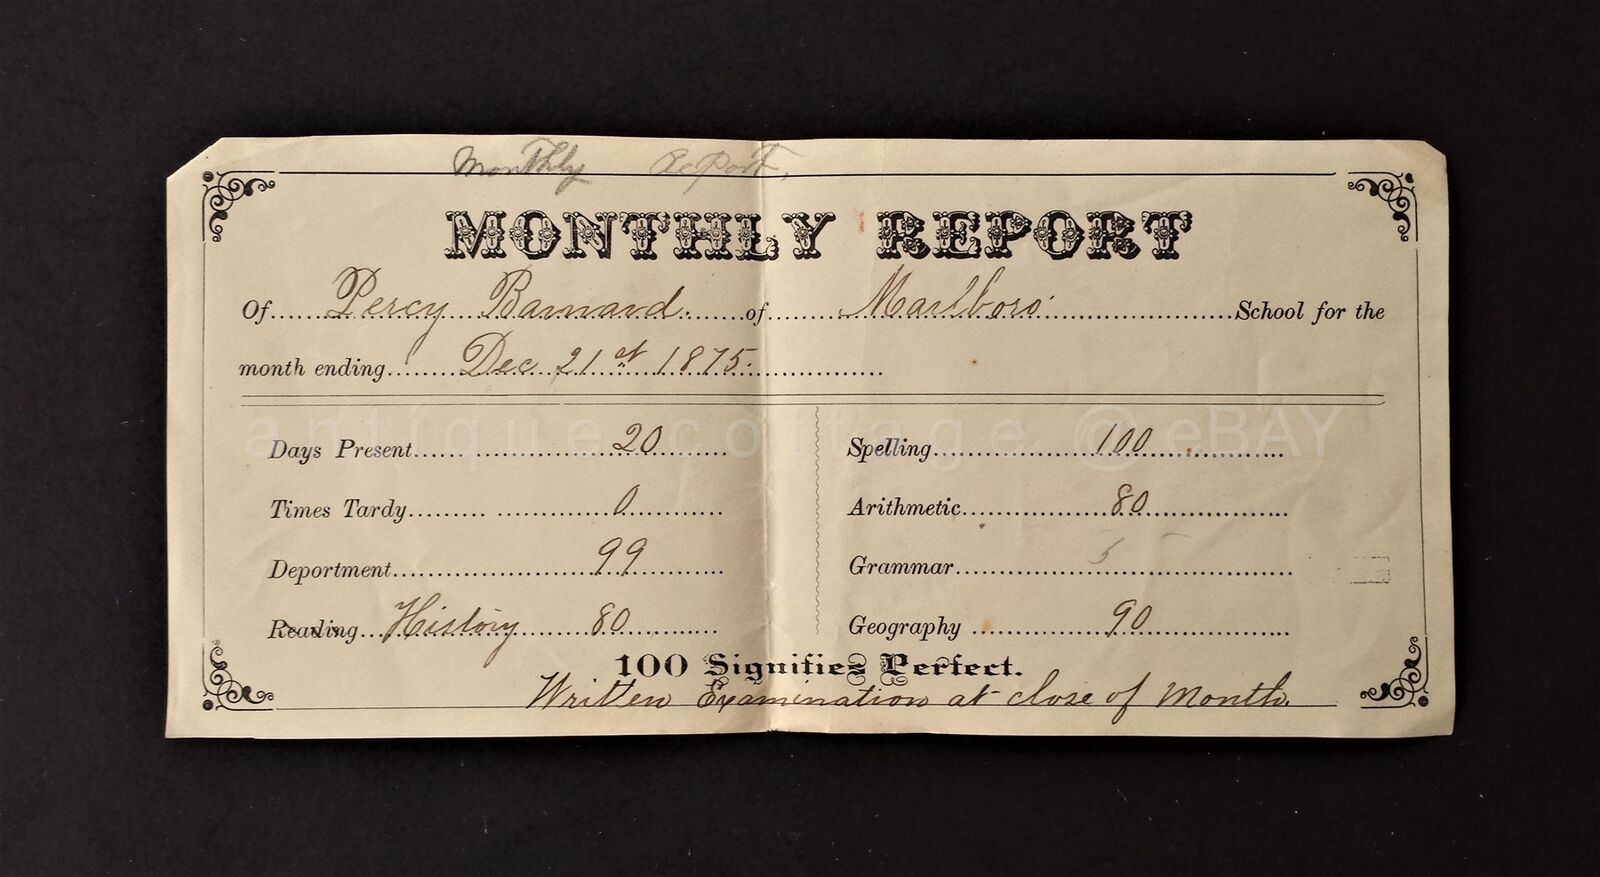 Monthly Report,
MONTHLY REPORT
Of Percy Barnard. of Marlboro. School for the
month ending Dec 21st 1875.
antique cottage @ eBAY
Days Present 20
Spelling 100
Times Tardy 0
Arithmetic 80
Deportment 99
Grammar
Reading History 80
Geography 90
100 Signifies Perfect.
Written Examination at close of Month.